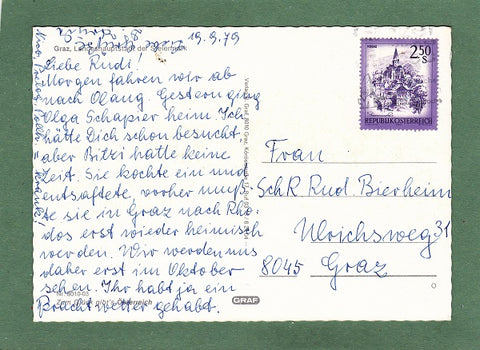 19.9.79
Graz, Landeshauptstadt der Steiermark
Liebe Rudi!
Morgen fahren wir ab
nach Olang. Gestern ging
Olga Schapier heim. Ich
hätte Dich schon besucht,
aber Bitri hatte keine
Zeit. Sie kochte ein und
entsaftete, vorher muß-
te sie in Graz nach Rho-
dos erst wieder heimisch
werden. Wir werden uns
daher erst im Oktober
sehen. Ihr habt ja ein
Prachtwetter gehabt.
gibt's Österreich
GRAF
2.50
S
REPUBLIK ÖSTERREICH
Frau
SchR Rud. Bierheim
Ulrichsweg 31
8045 Graz